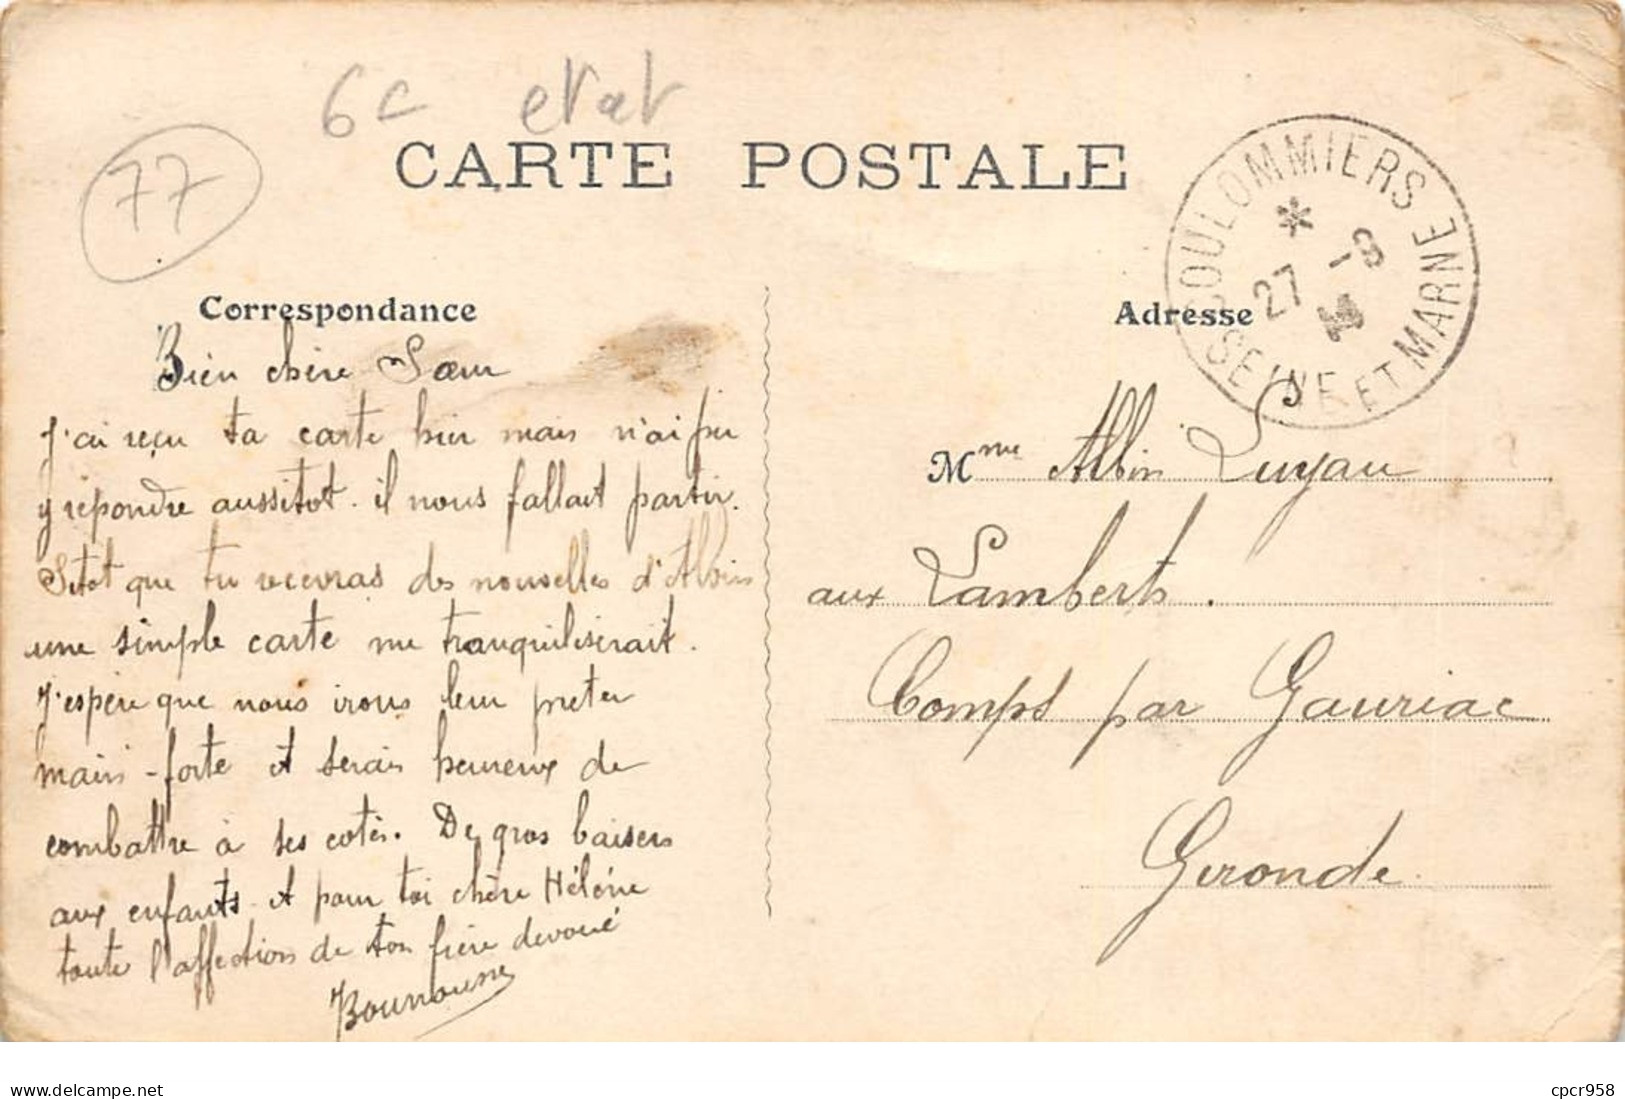 6c état
77
CARTE POSTALE
COULOMMIERS
* 27 -8
SEINE ET MARNE
Correspondance
Bien chère Sœur
J'ai reçu ta carte hier mais n'ai pu
y répondre aussitot. il nous fallait partir.
Sitot que tu recevras des nouvelles d'Albin
une simple carte me tranquiliserait.
J'espère que nous irons leur preter
main-forte et serais heureux de
combattre à ses cotés. De gros baisers
aux enfants et pour toi chère Hélène
toute l'affection de ton frère devoué
Adresse
Mme Albin Luyau
aux Lamberts.
Comps par Gauriac
Gironde.
delcampe.net
cpcr958